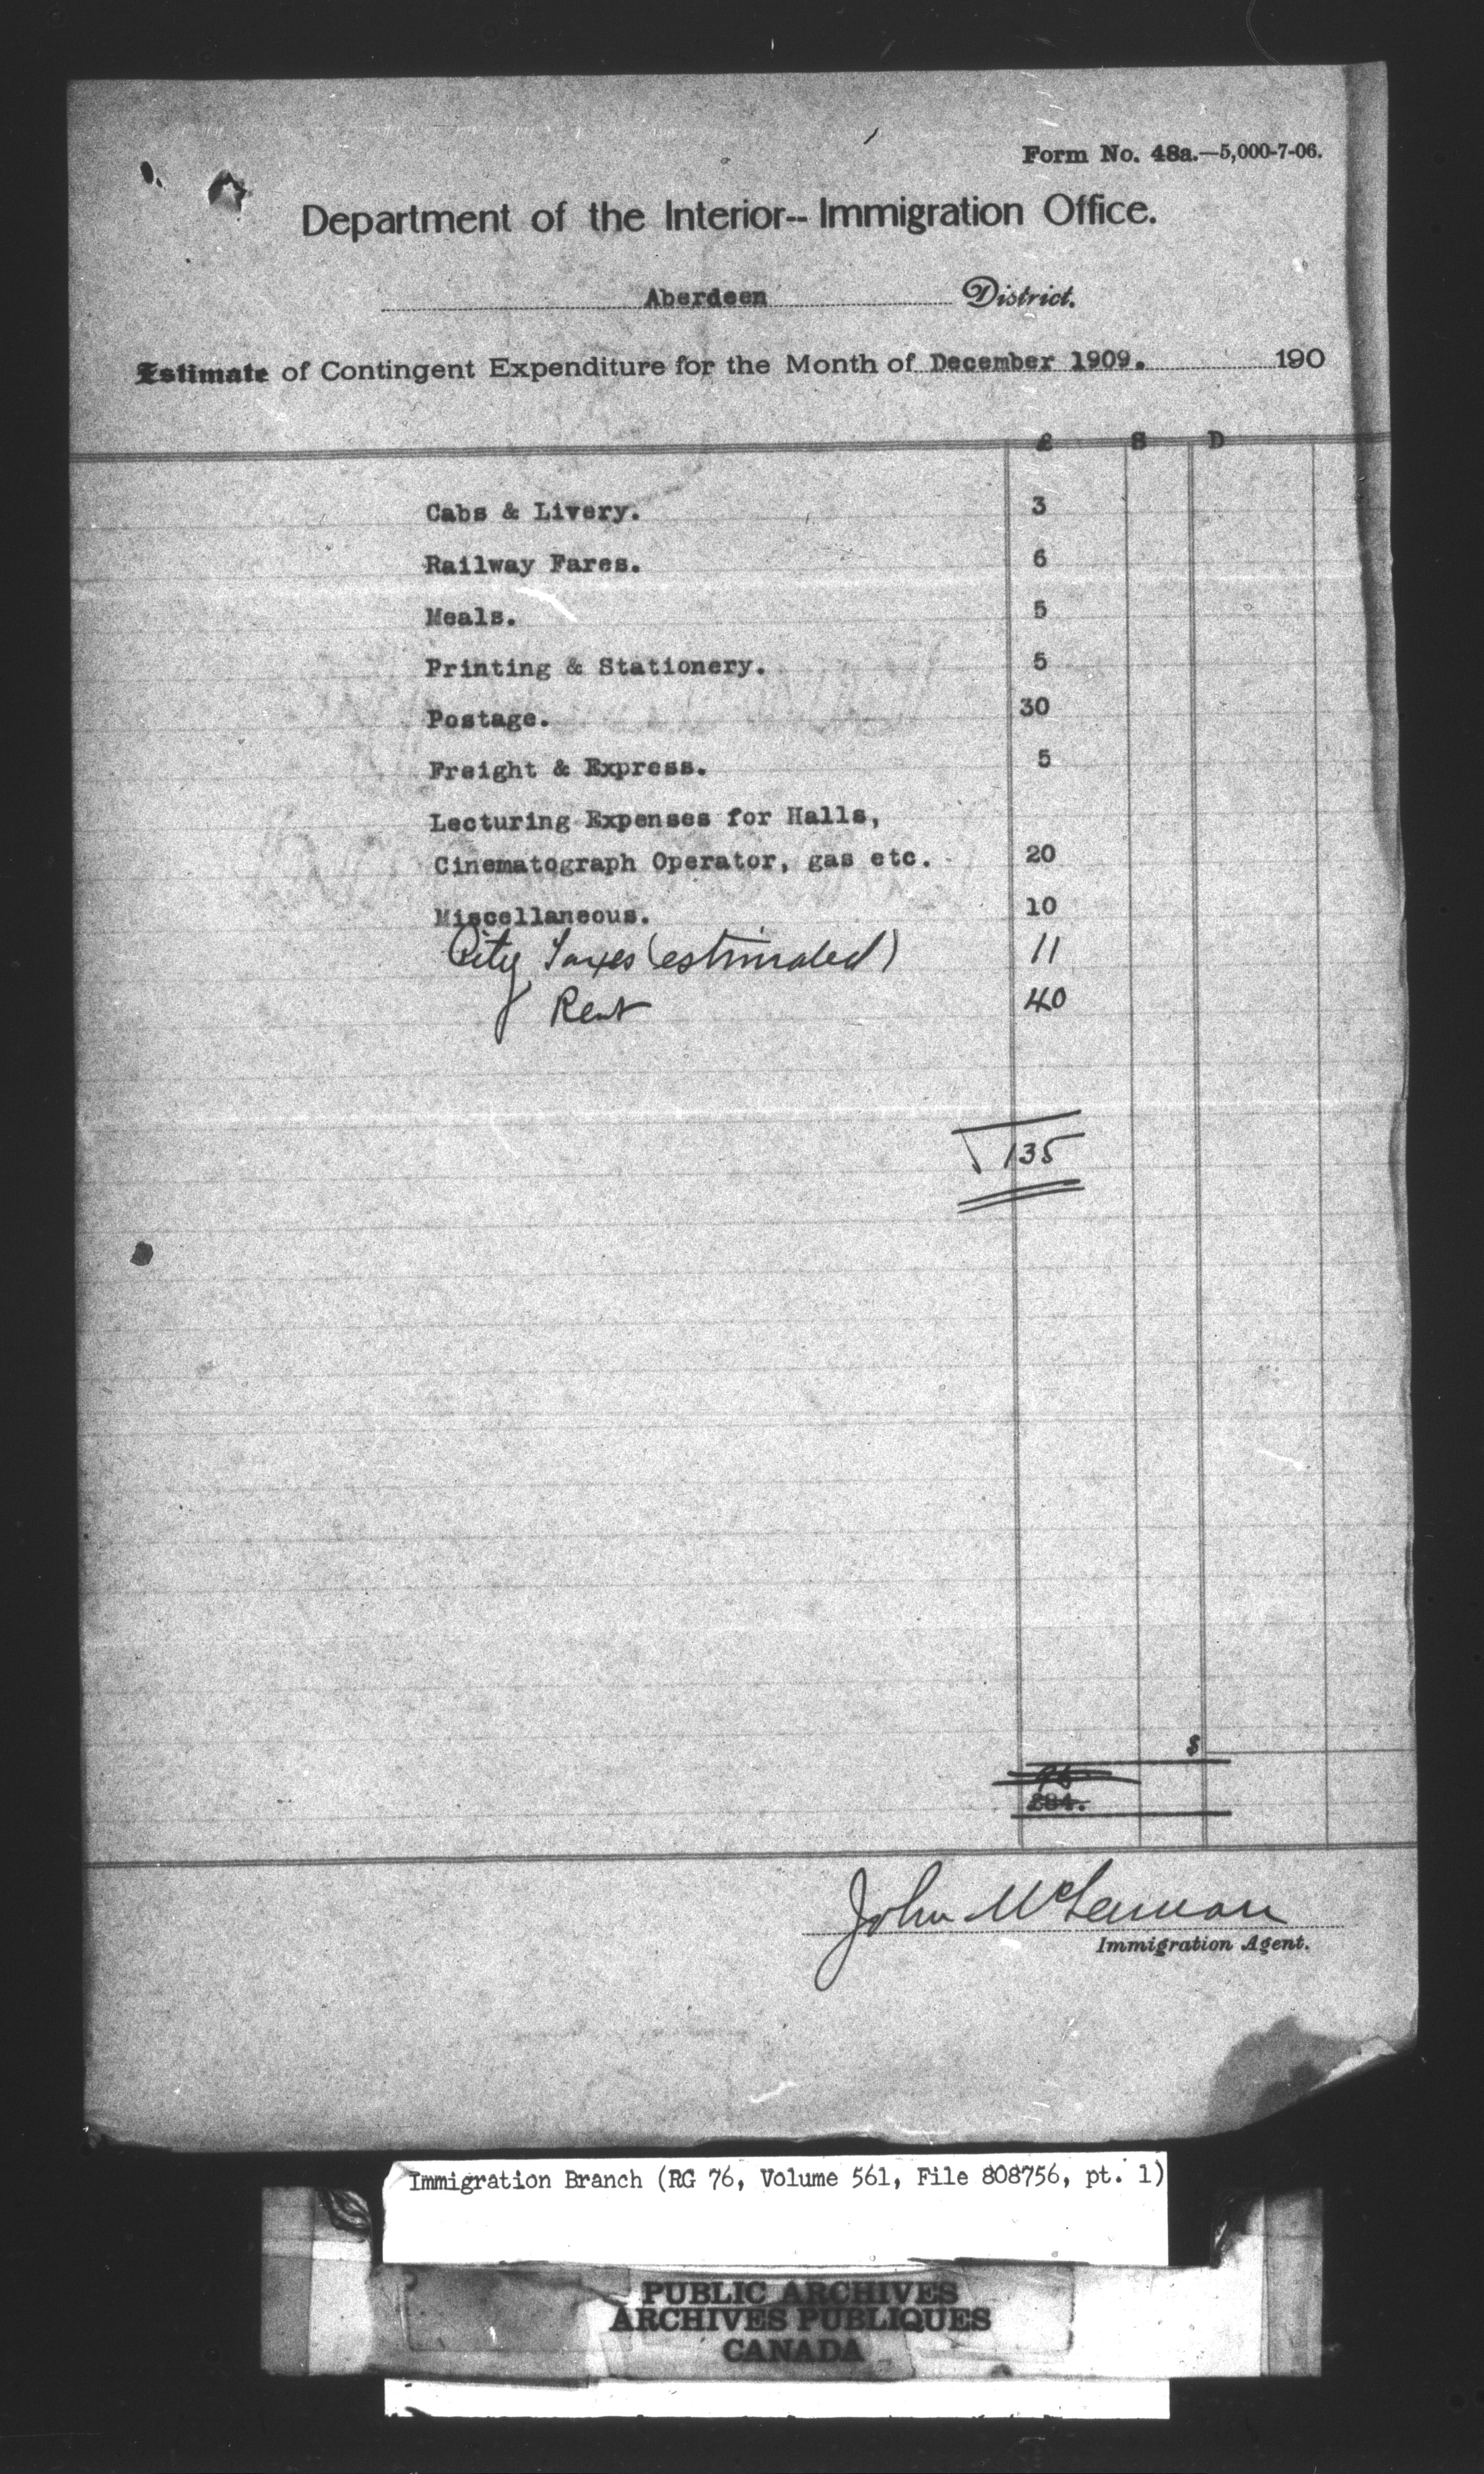 Form No. 48a.—5,000-7-06.
Department of the Interior-- Immigration Office.
Aberdeen District.
Estimate of Contingent Expenditure for the Month of December 1909. 190
£ S D
Cabs & Livery. 3
Railway Fares. 6
Meals. 5
Printing & Stationery. 5
Postage. 30
Freight & Express. 5
Lecturing Expenses for Halls,
Cinematograph Operator, gas etc. 20
Miscellaneous. 10
City Taxes (estimated) 11
Rent 40
135
$
£84.
John McLennan
Immigration Agent.
Immigration Branch (RG 76, Volume 561, File 808756, pt. 1)
PUBLIC ARCHIVES
ARCHIVES PUBLIQUES
CANADA